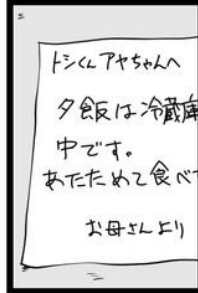 トシくんアヤちゃんへ
夕飯は冷蔵庫
中です。
あたためて食べ
お母さんより